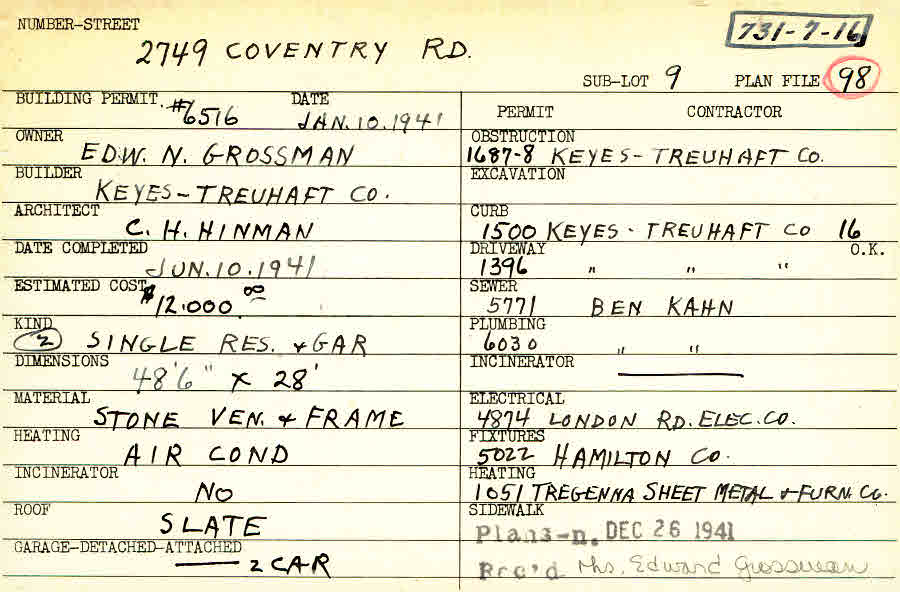 NUMBER-STREET
2749 COVENTRY RD.
731-7-16
SUB-LOT 9 PLAN FILE 98
BUILDING PERMIT. #6516 DATE JAN.10.1941
OWNER
EDW. N. GROSSMAN
BUILDER
KEYES-TREUHAFT CO.
ARCHITECT
C. H. HINMAN
DATE COMPLETED
JUN.10.1941
ESTIMATED COST
$12.000 00
KIND
2 SINGLE RES. & GAR
DIMENSIONS
48'6" X 28'
MATERIAL
STONE VEN. & FRAME
HEATING
AIR COND
INCINERATOR
NO
ROOF
SLATE
GARAGE-DETACHED-ATTACHED
2 CAR
PERMIT CONTRACTOR
OBSTRUCTION
1687-8 KEYES-TREUHAFT CO.
EXCAVATION
CURB
1500 KEYES-TREUHAFT CO 16
DRIVEWAY O.K.
1396 " " "
SEWER
5771 BEN KAHN
PLUMBING
6030 " "
INCINERATOR
ELECTRICAL
4874 LONDON RD. ELEC. CO.
FIXTURES
5022 HAMILTON CO.
HEATING
1051 TREGENNA SHEET METAL & FURN. CO.
SIDEWALK
Plans-n. DEC 26 1941
Rec'd Mrs. Edward Grossman